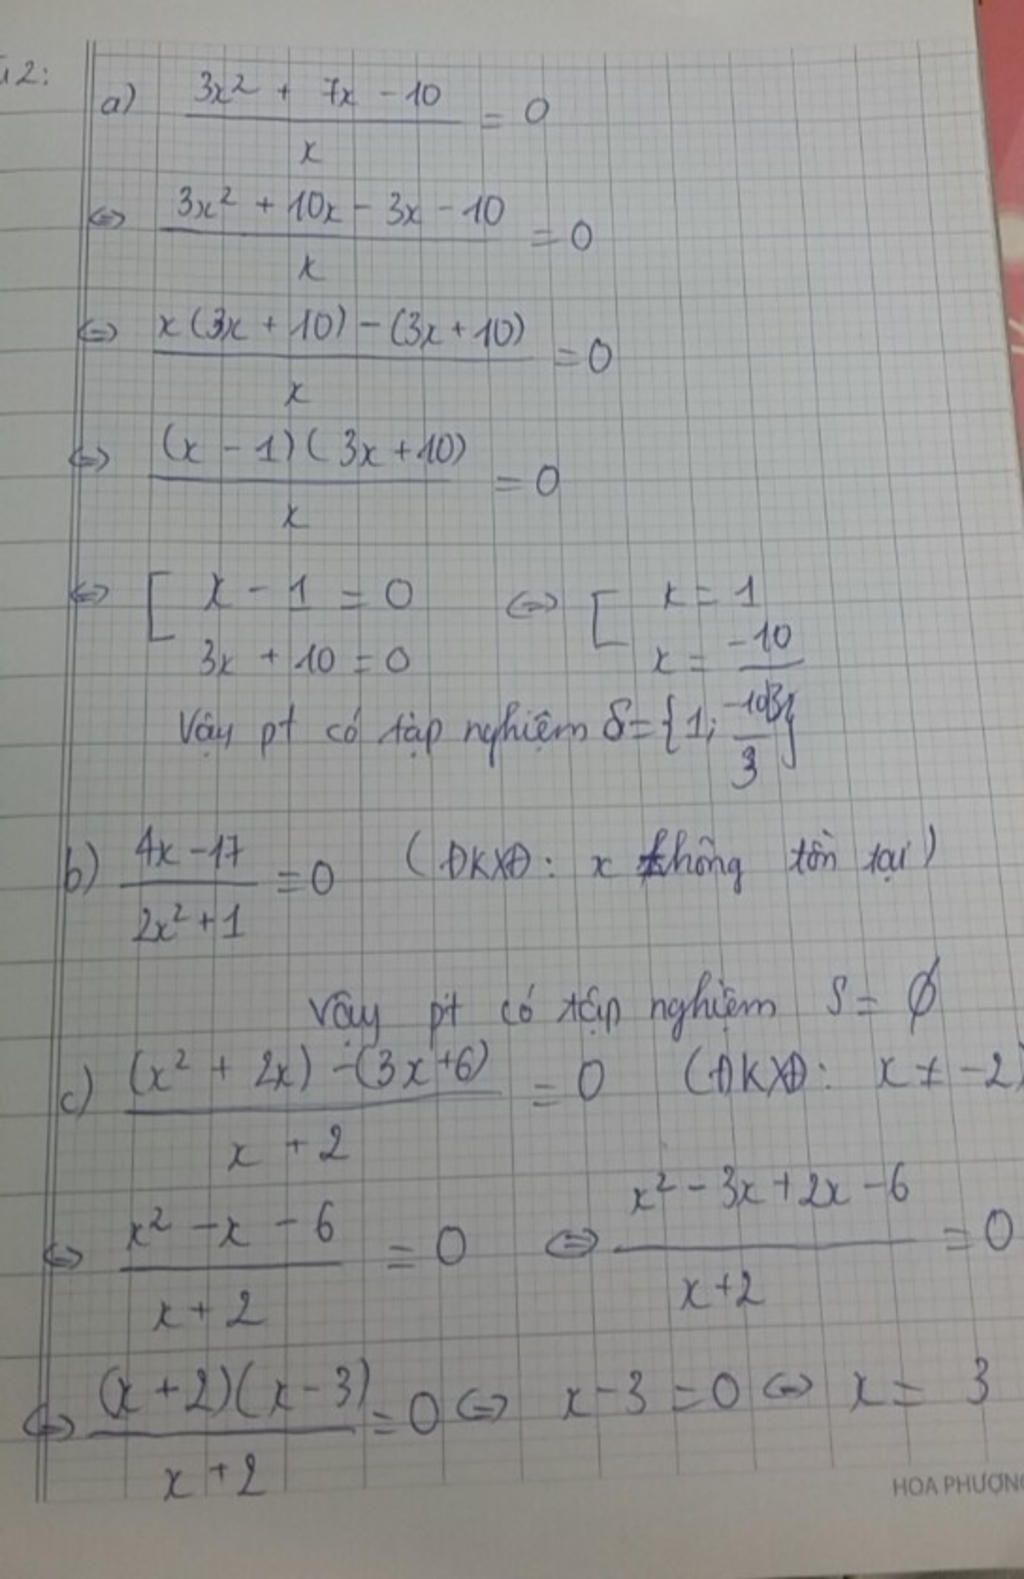 2:
a) (3x² + 7x - 10)/x = 0
⇔ (3x² + 10x - 3x - 10)/x = 0
⇔ (x(3x + 10) - (3x + 10))/x = 0
⇔ ((x - 1)(3x + 10))/x = 0
⇔ [ x - 1 = 0 ⇔ [ x = 1
3x + 10 = 0 x = -10/3
Vậy pt có tập nghiệm S = {1; -10/3}
b) (4x - 17)/(2x² + 1) = 0 (ĐKXĐ: x không tồn tại)
Vậy pt có tập nghiệm S = ∅
c) ((x² + 2x) - (3x + 6))/(x + 2) = 0 (ĐKXĐ: x ≠ -2)
⇔ (x² - x - 6)/(x + 2) = 0 ⇔ (x² - 3x + 2x - 6)/(x + 2) = 0
⇔ ((x + 2)(x - 3))/(x + 2) = 0 ⇔ x - 3 = 0 ⇔ x = 3
HOA PHƯỢNG